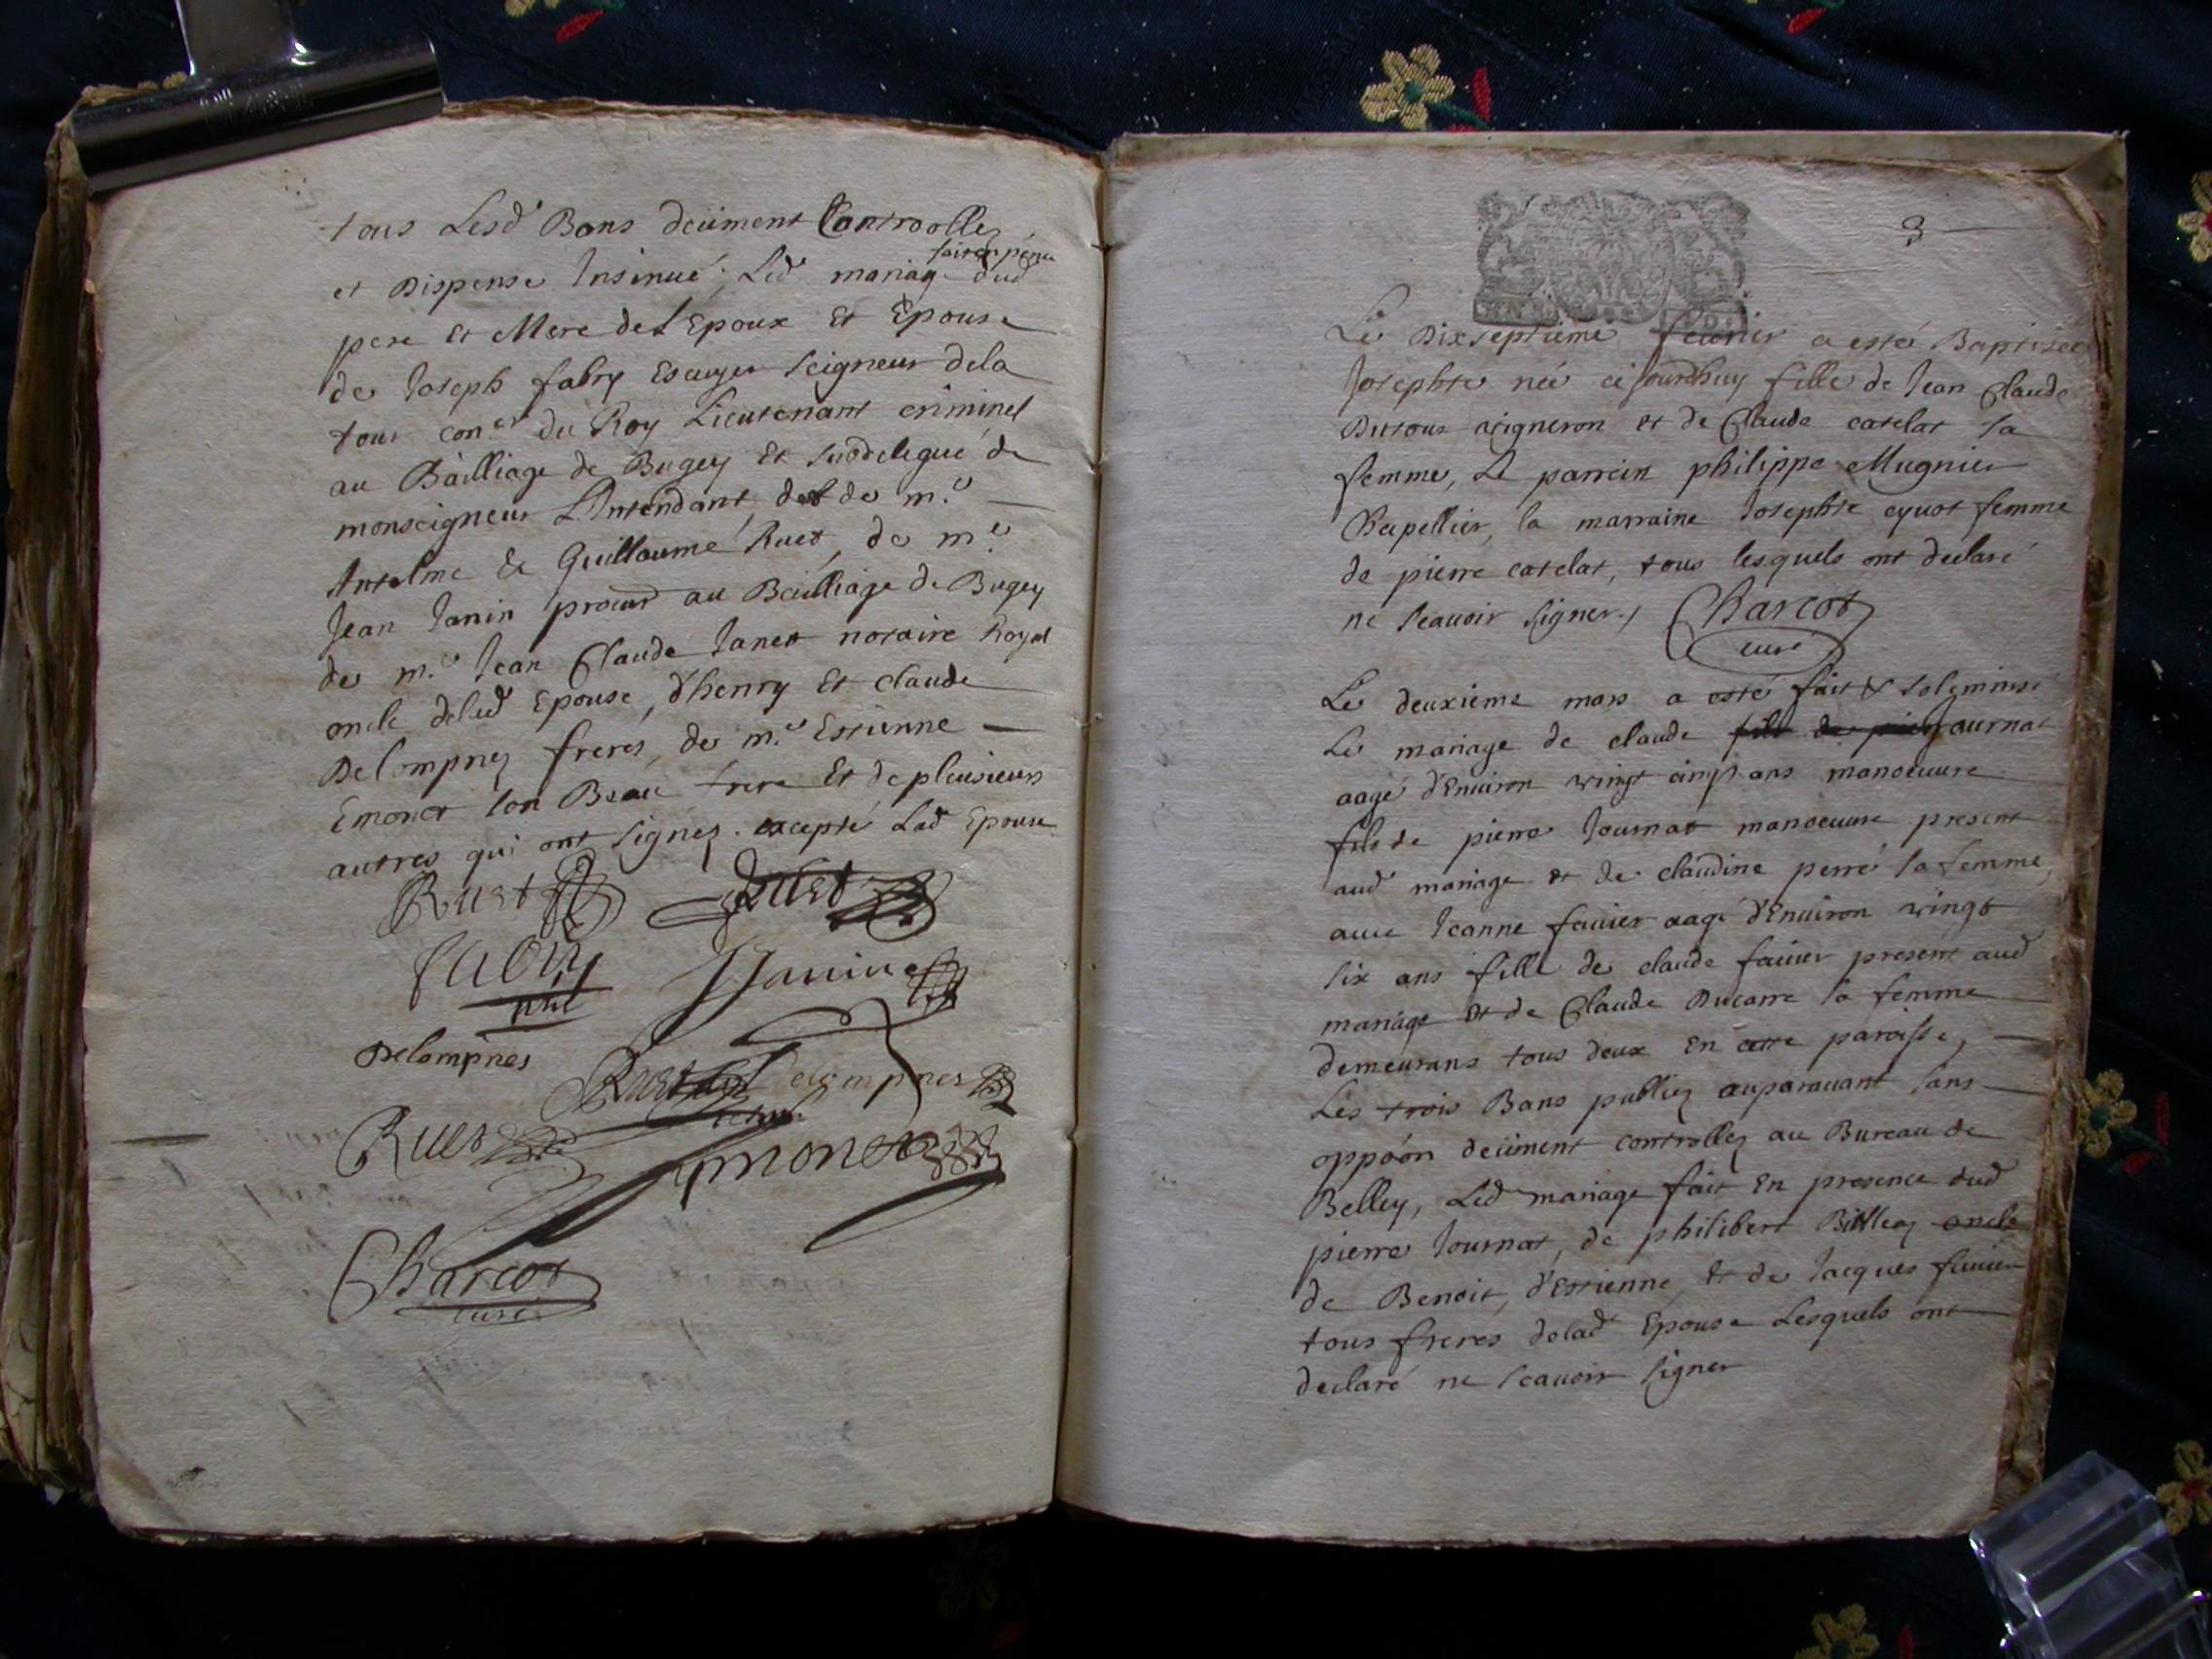 tous Lesd Bans deüment Controollez
et Dispense Insinué; Led mariage fait en pnce dud
pere Et Mere de L Epoux Et Epouse
de Joseph fabry Escuyer seigneur dela
tour con.er du Roy Lieutenant criminel
au Bailliage de Bugey Et subdelegué de
monseigneur L'Intendant, de m.e
Antelme Et Guillaume Ruet, de m.e
Jean Janin procur au Bailliage de Bugey
de m.e Jean Claude Janet notaire Royal
oncle delad Epouse, d'henry Et claude
Delompnez freres, de m.e Estienne
Emonet son Beau frere Et de plusieurs
autres qui ont signez. excepté Lad Epouse
Ruet Ruet
fabry Janin
Delompnes
Delompnes
Ruet Emonet
Charcot
curé
3
Le Dixseptieme feuvrier a esté Baptisée
Josephte née ce jourdhuy fille de Jean Claude
Dutour vigneron et de Claude catelat sa
femme, Le parrein philippe Mugnier
Chapellier, la marraine Josephte cyuot femme
de pierre catelat, tous lesquels ont declaré
ne scauoir signer./ Charcot
curé
Le deuxieme mars a esté fait & solemnisé
Le mariage de claude fils de pier Journat
aagé d'Enuiron vingt cinq ans manoeuure
fils de pierre Journat manoeuure present
aud mariage et de claudine perré sa femme,
auec Jeanne fauier aagé d'Enuiron vingt
six ans fille de claude fauier present aud
mariage Et de Claude Ducarre sa femme
demeurans tous deux En cette paroisse,
Les trois Bans publiez auparauant sans
oppoôn deüment controllez au Bureau de
Belley, Led mariage fait En presence dud
pierre Journat, de philibert Billiez oncle
de Benoit, d'Estienne, Et de Jacques fauier
tous freres delad Epouse Lesquels ont
declaré ne scauoir signer